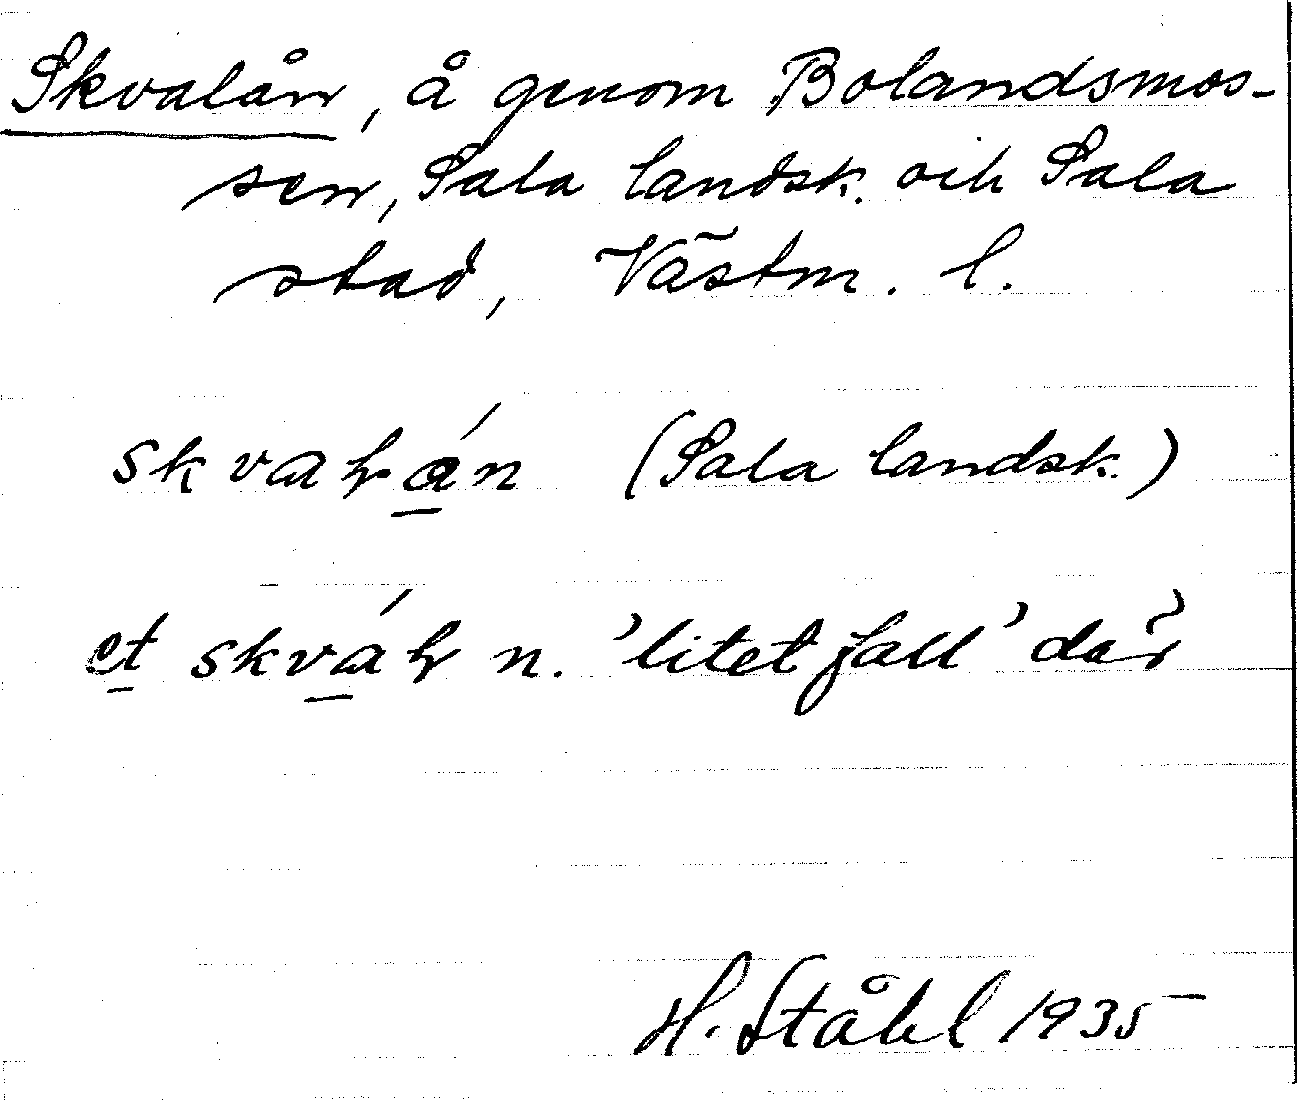 Skvalån, å genom Bolandsmos-
sen, Sala landsk. och Sala
stad, Västm. l.
skvaꞎán (Sala landsk.)
et skváꞎ n. 'litet fall' där
H. Ståhl 1935